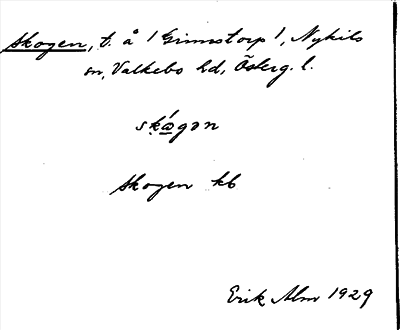 Skogen, t. å /Grimstorp/, Nykils
sn, Valkebo hd, Österg. l.
skógən
Skogen kb
Erik Alm 1929